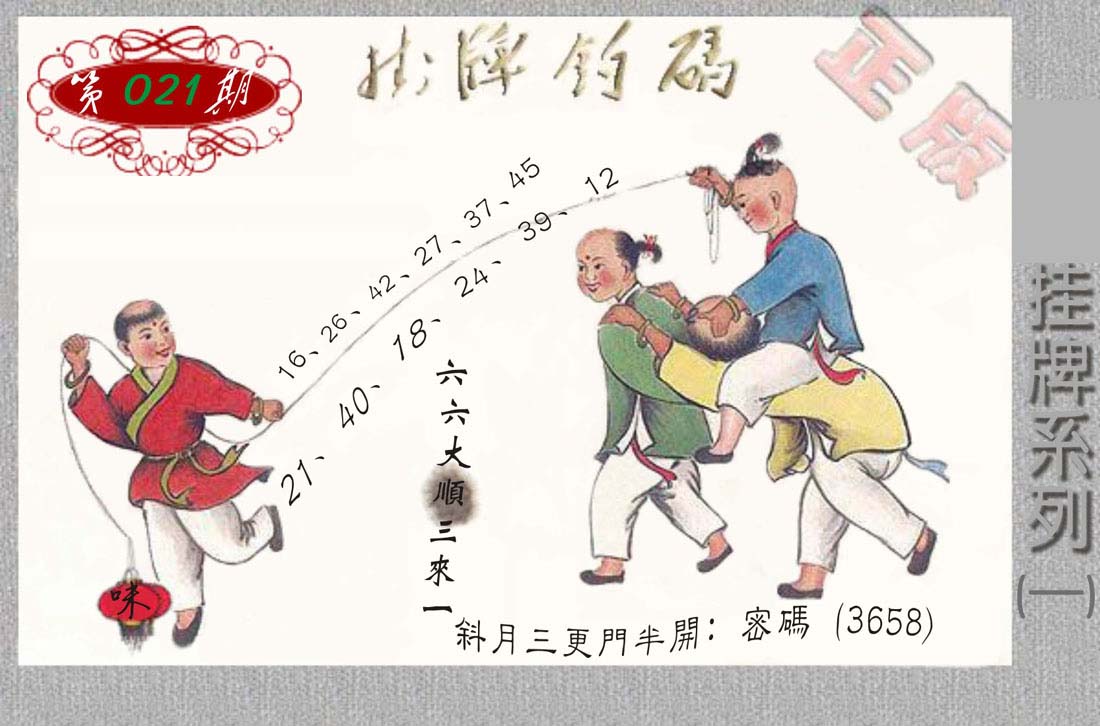 第021期
掛牌釣碼
正版
16、26、42、27、37、45
21、40、18、24、39、12
六六大順三來一
咪
斜月三更門半開：密碼（3658）
挂牌系列(一)